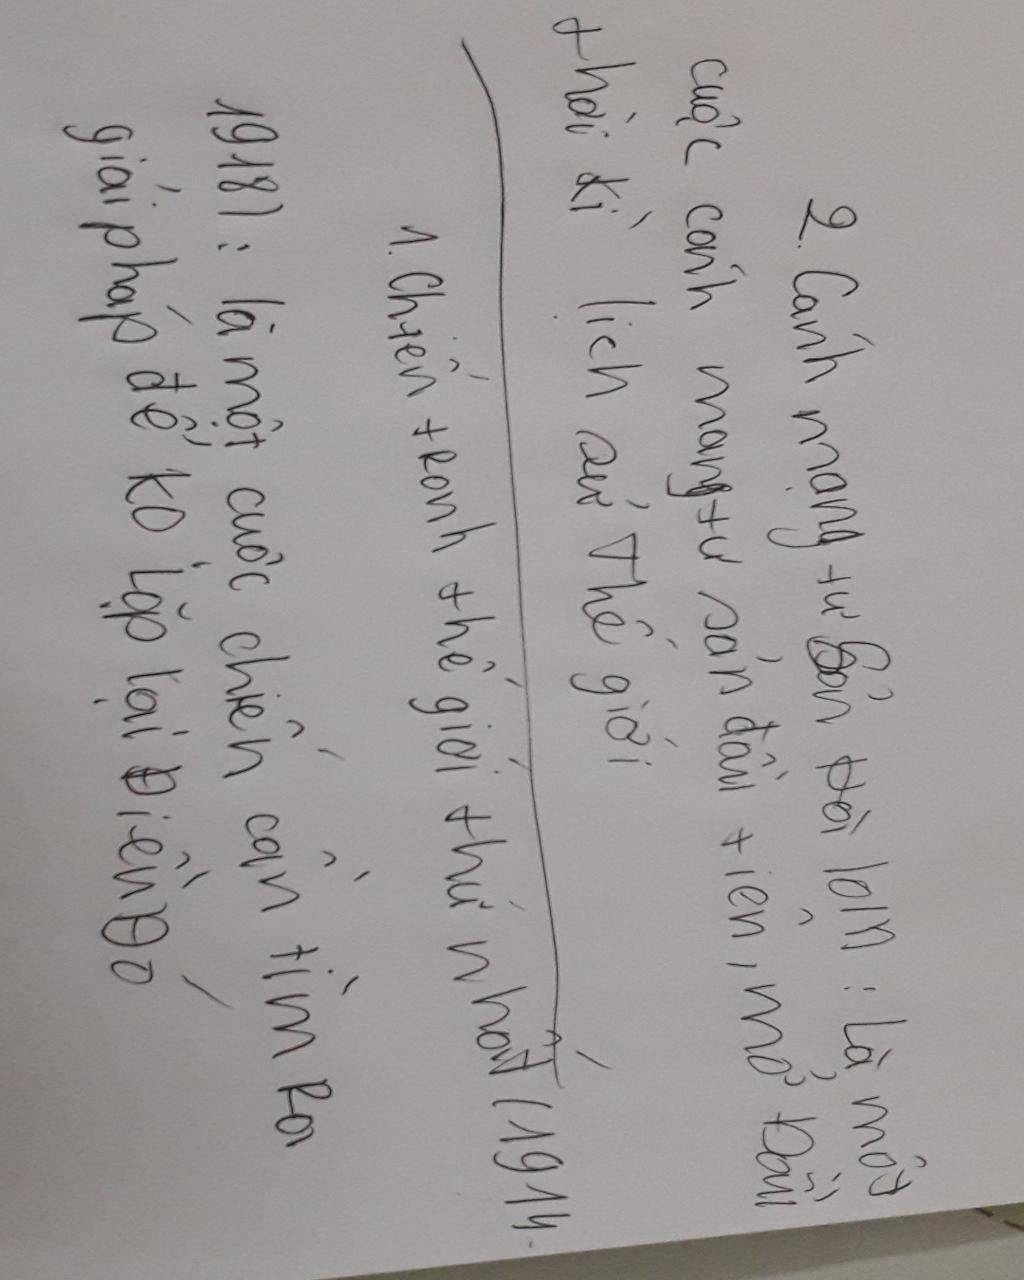 2. Cánh mạng tư sản Đời 1o1n : Là một
cuộc cánh mang tư sản đầu tiên, mở Đầu
thời kì lịch sử Thế giới
1. Chiến tranh thế giới thứ nhất (1914-
1918) : là một cuộc chiến cần tìm Ra
giải pháp để ko lặp lại Điều Đó